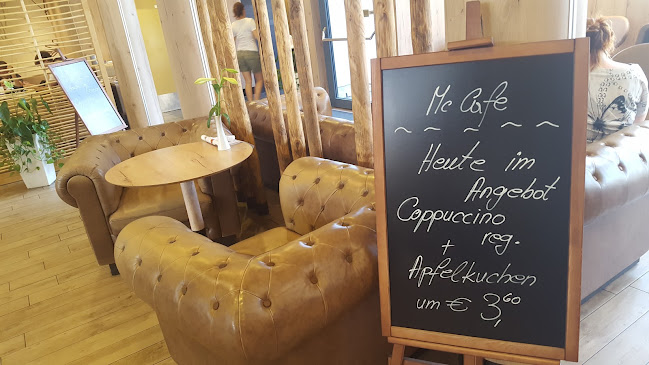 Mc Cafe
~ ~ ~ ~ ~
Heute im
Angebot
Cappuccino
reg.
+
Apfelkuchen
um € 3,60